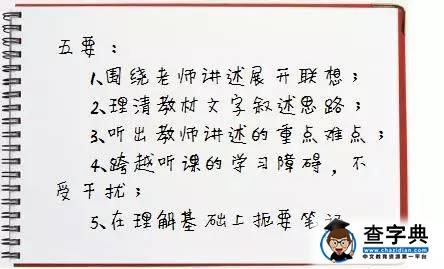 五要：
1、围绕老师讲述展开联想；
2、理清教材文字叙述思路；
3、听出教师讲述的重点难点；
4、跨越听课的学习障碍，不
受干扰；
5、在理解基础上扼要笔记
查字典
www.chazidian.com
中文教育资源第一平台